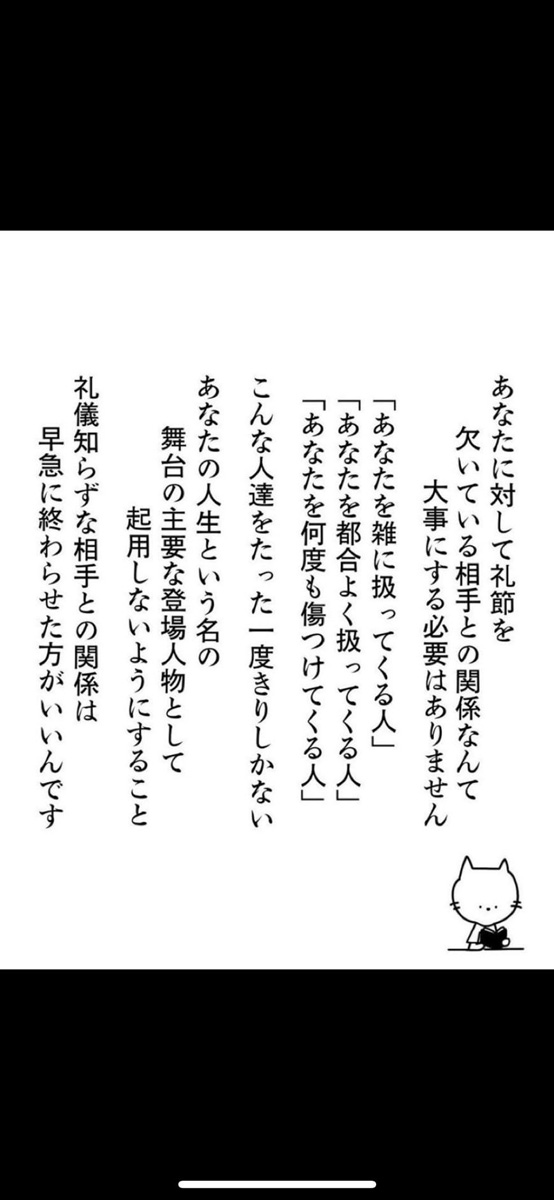 あなたに対して礼節を
欠いている相手との関係なんて
大事にする必要はありません
「あなたを雑に扱ってくる人」
「あなたを都合よく扱ってくる人」
「あなたを何度も傷つけてくる人」
こんな人達をたった一度きりしかない
あなたの人生という名の
舞台の主要な登場人物として
起用しないようにすること
礼儀知らずな相手との関係は
早急に終わらせた方がいいんです